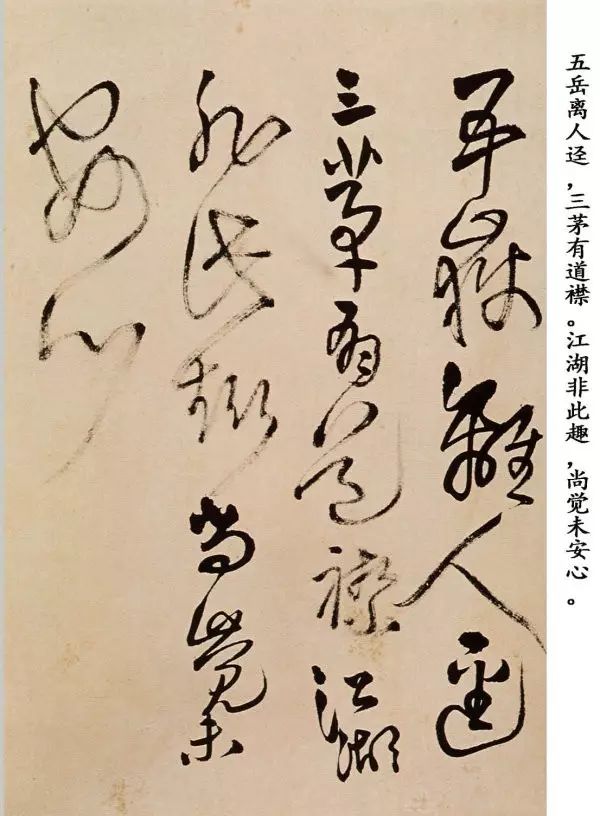 五嶽離人逕
三茅有道襟江湖
非此趣尚覺未
安心
五岳离人迳，三茅有道襟。江湖非此趣，尚觉未安心。